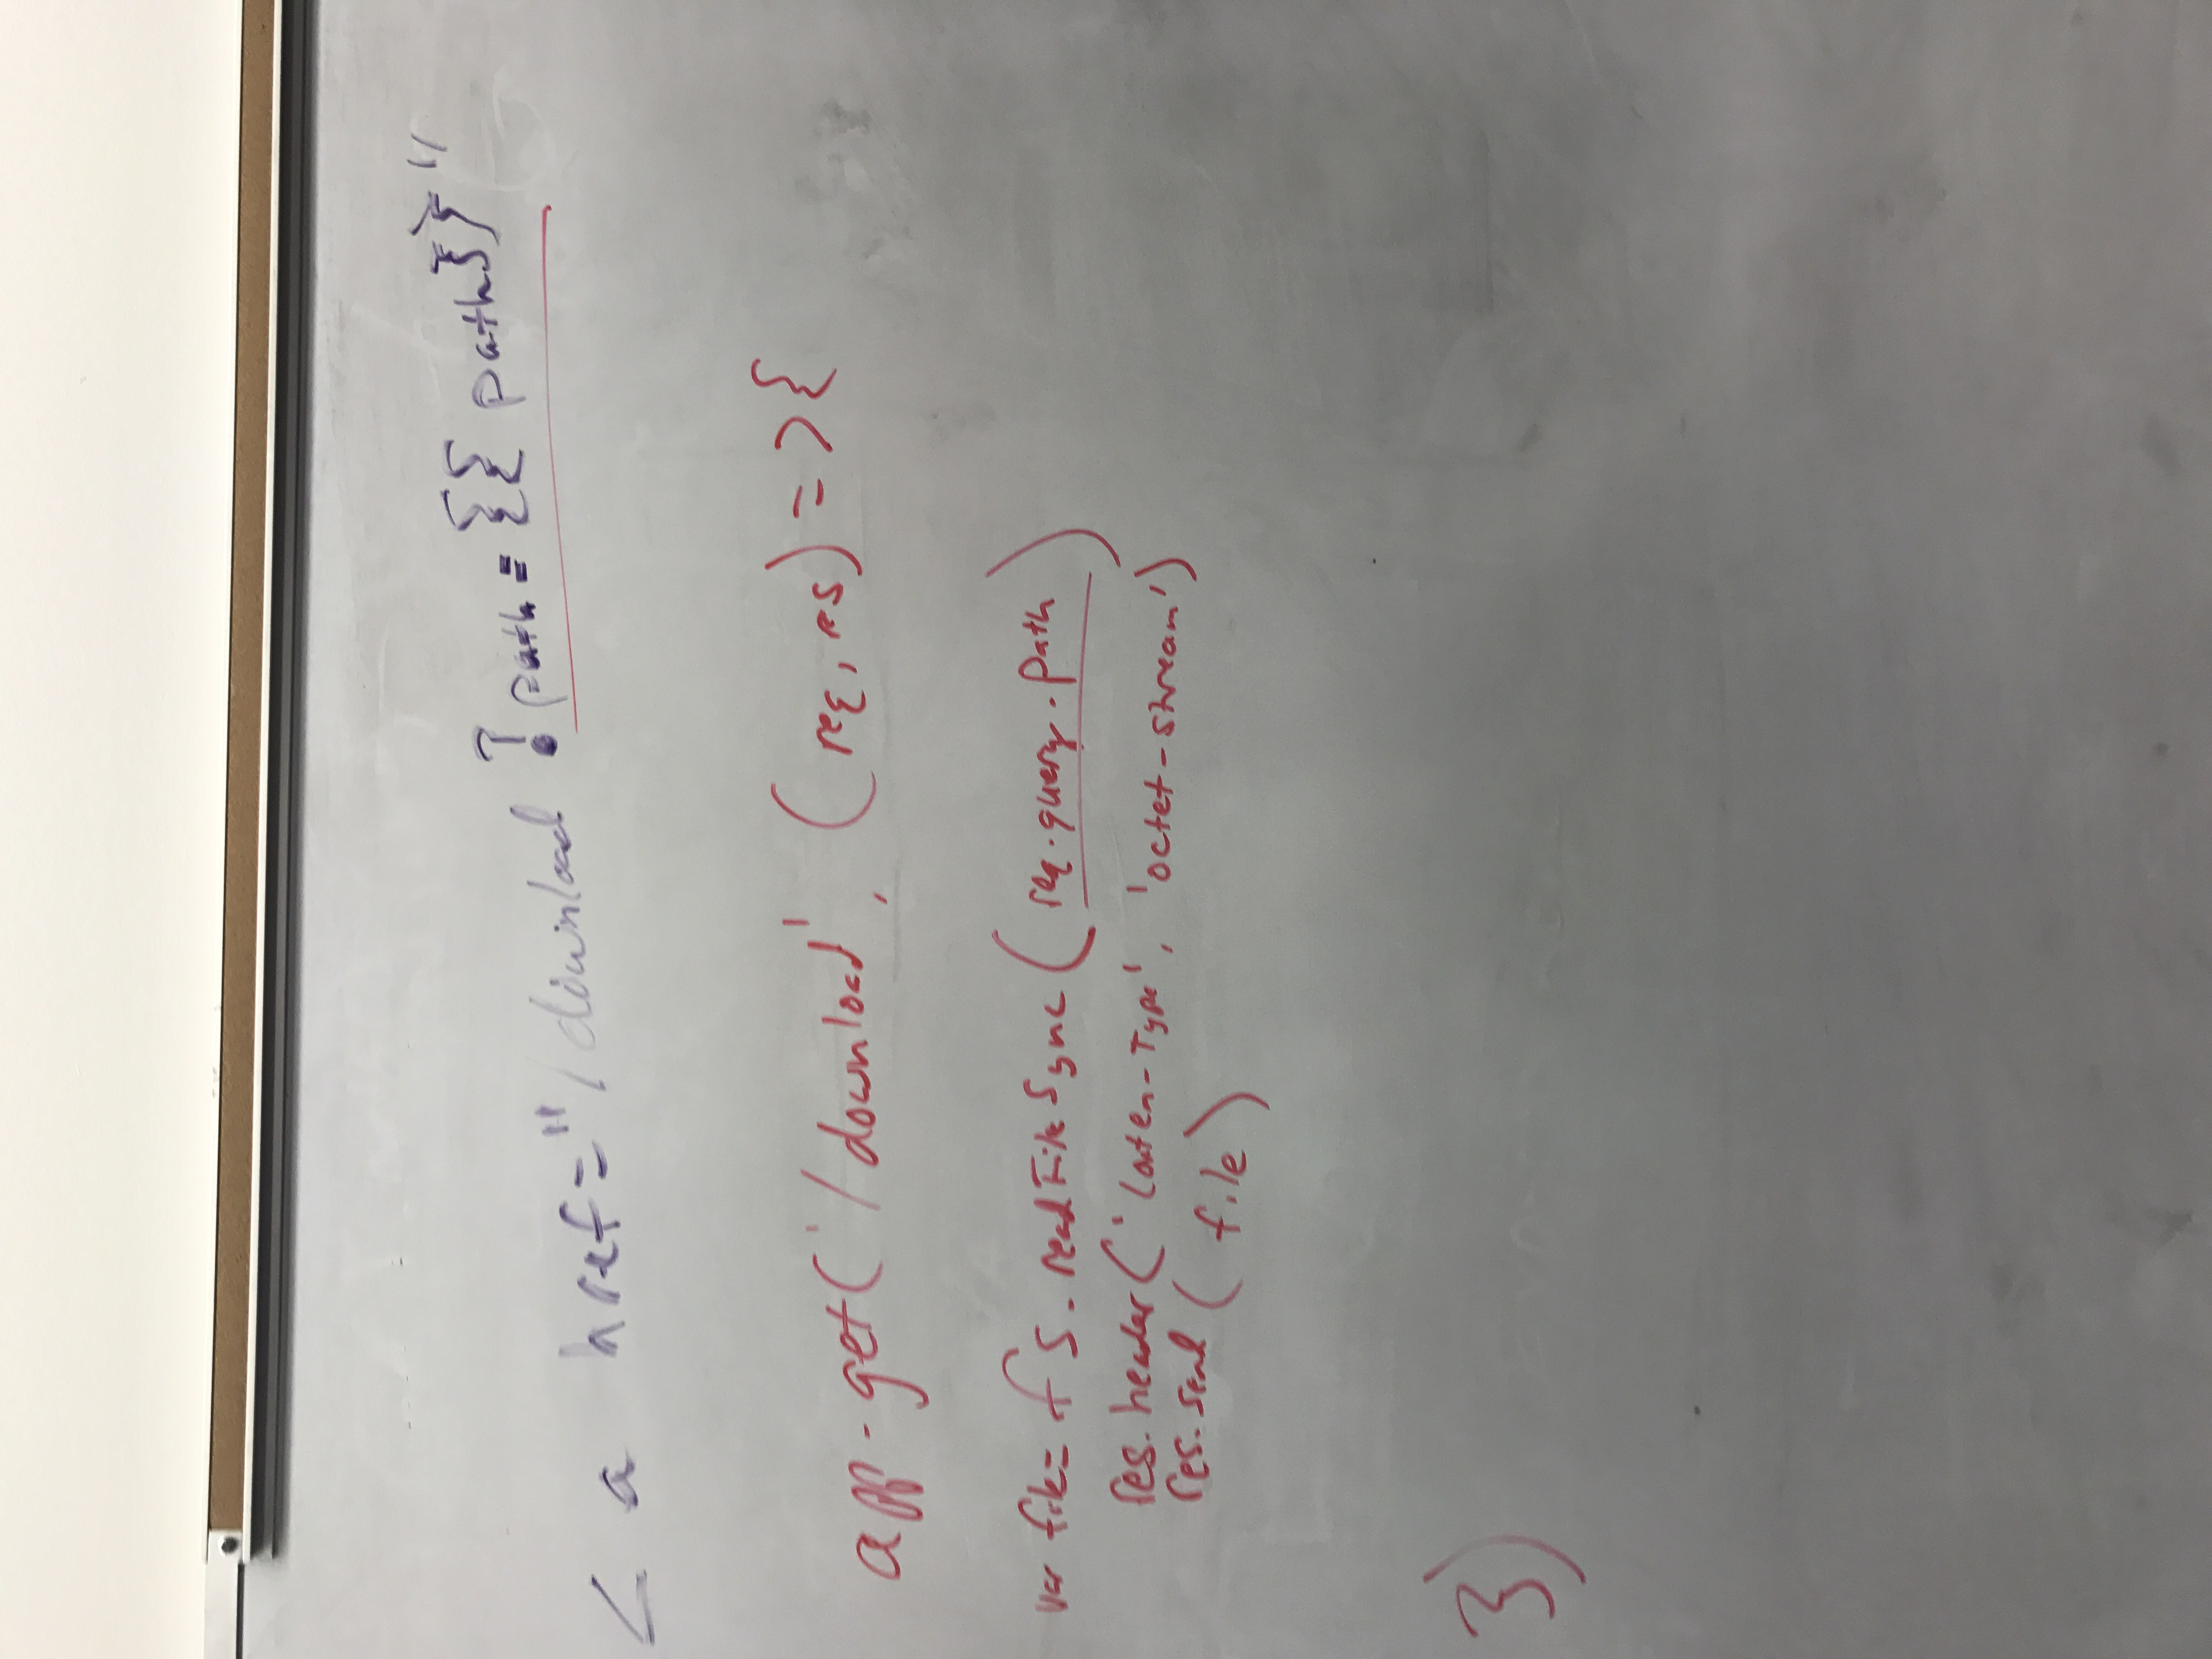 < a href="/download ? path={{ path}}"
app.get('/download', (req, res) => {
var file= fs.readFileSync(req.query.path)
res.header('Conten-Type', 'octet-stream')
res.send(file)
})